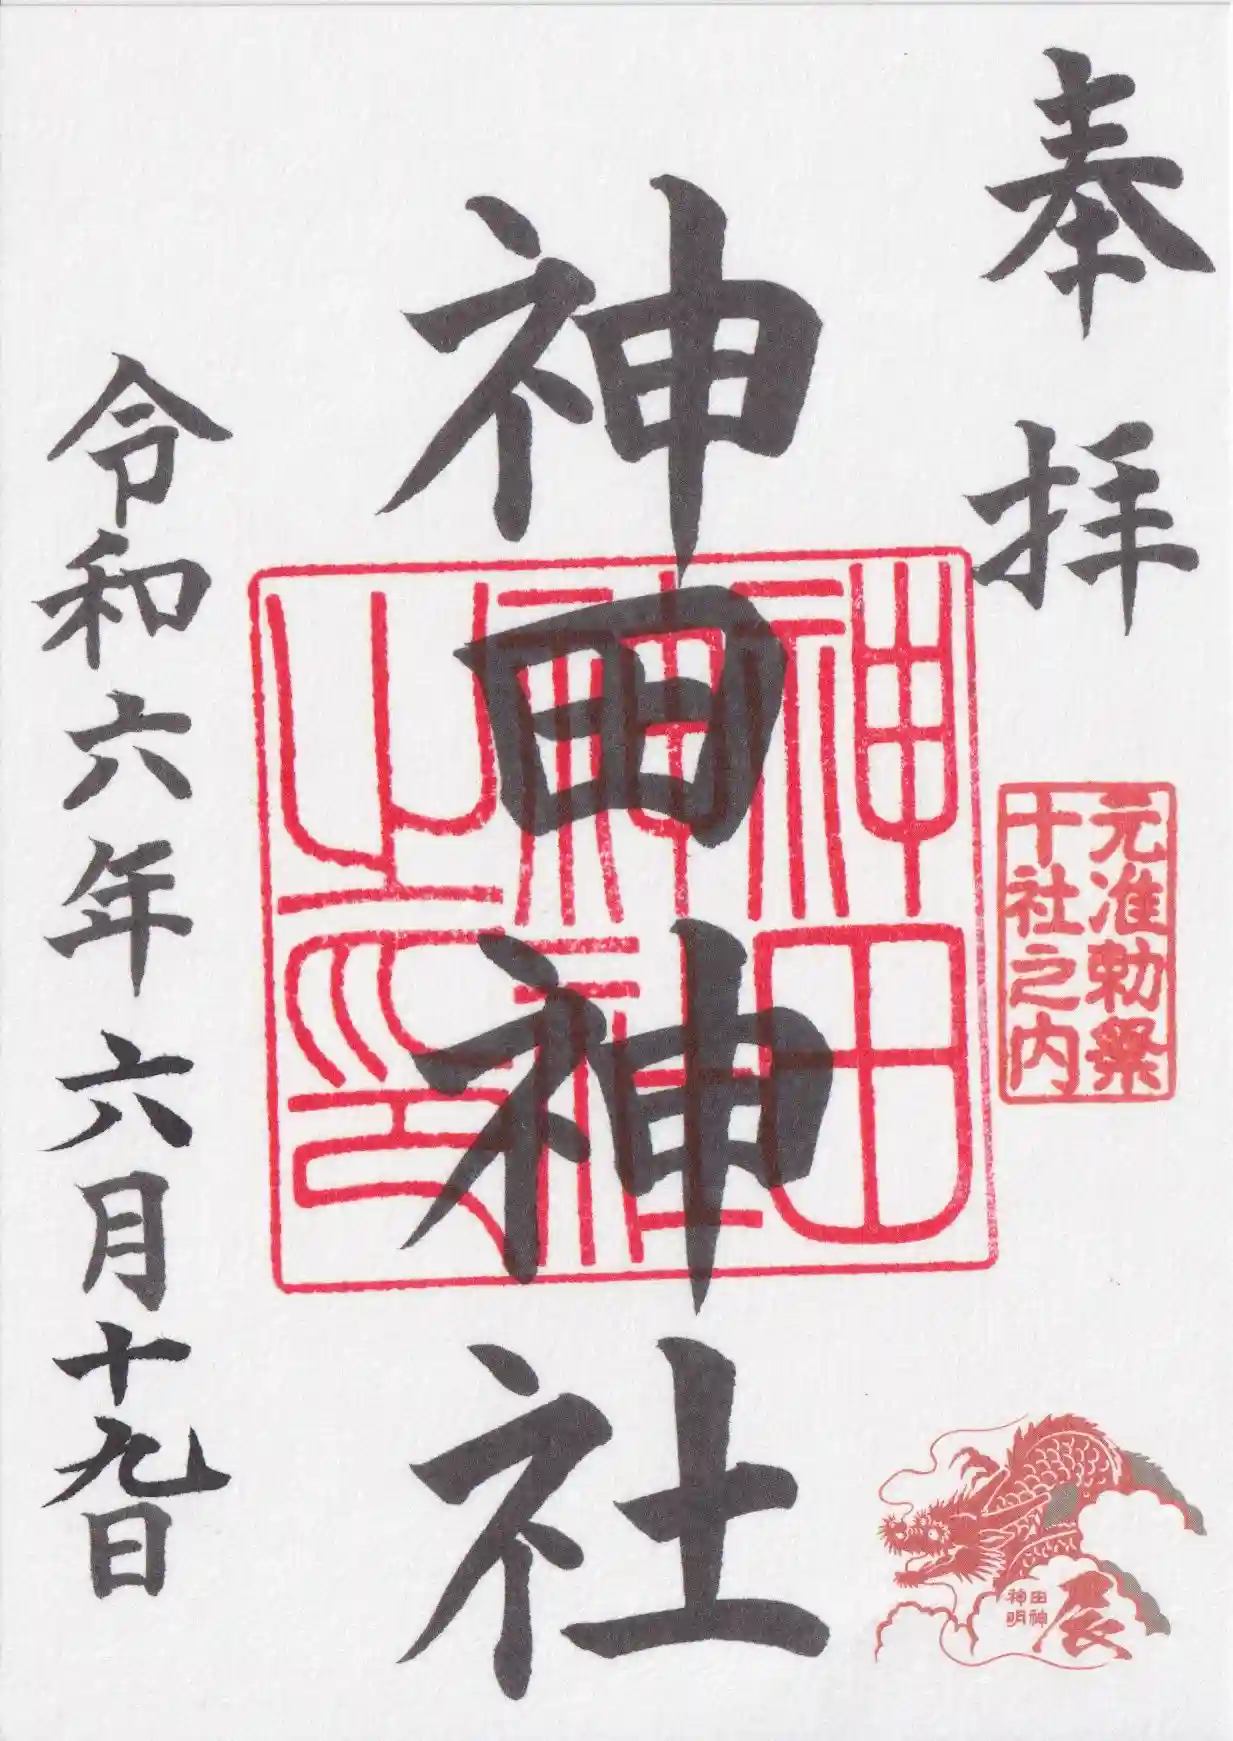 奉拝
元准勅祭
十社之内
神田神社
神田
神社
之印
令和六年六月十九日
田神
神明
辰